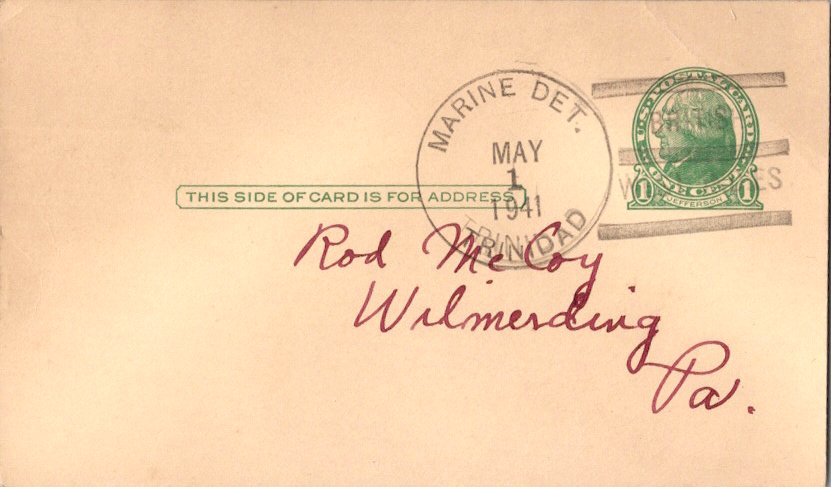 MARINE DET.
MAY
1
1941
TRINIDAD
U.S. POSTAL CARD
BRITISH
W IES
1 ONE CENT 1
JEFFERSON
THIS SIDE OF CARD IS FOR ADDRESS
Rod McCoy
Wilmerding
Pa.